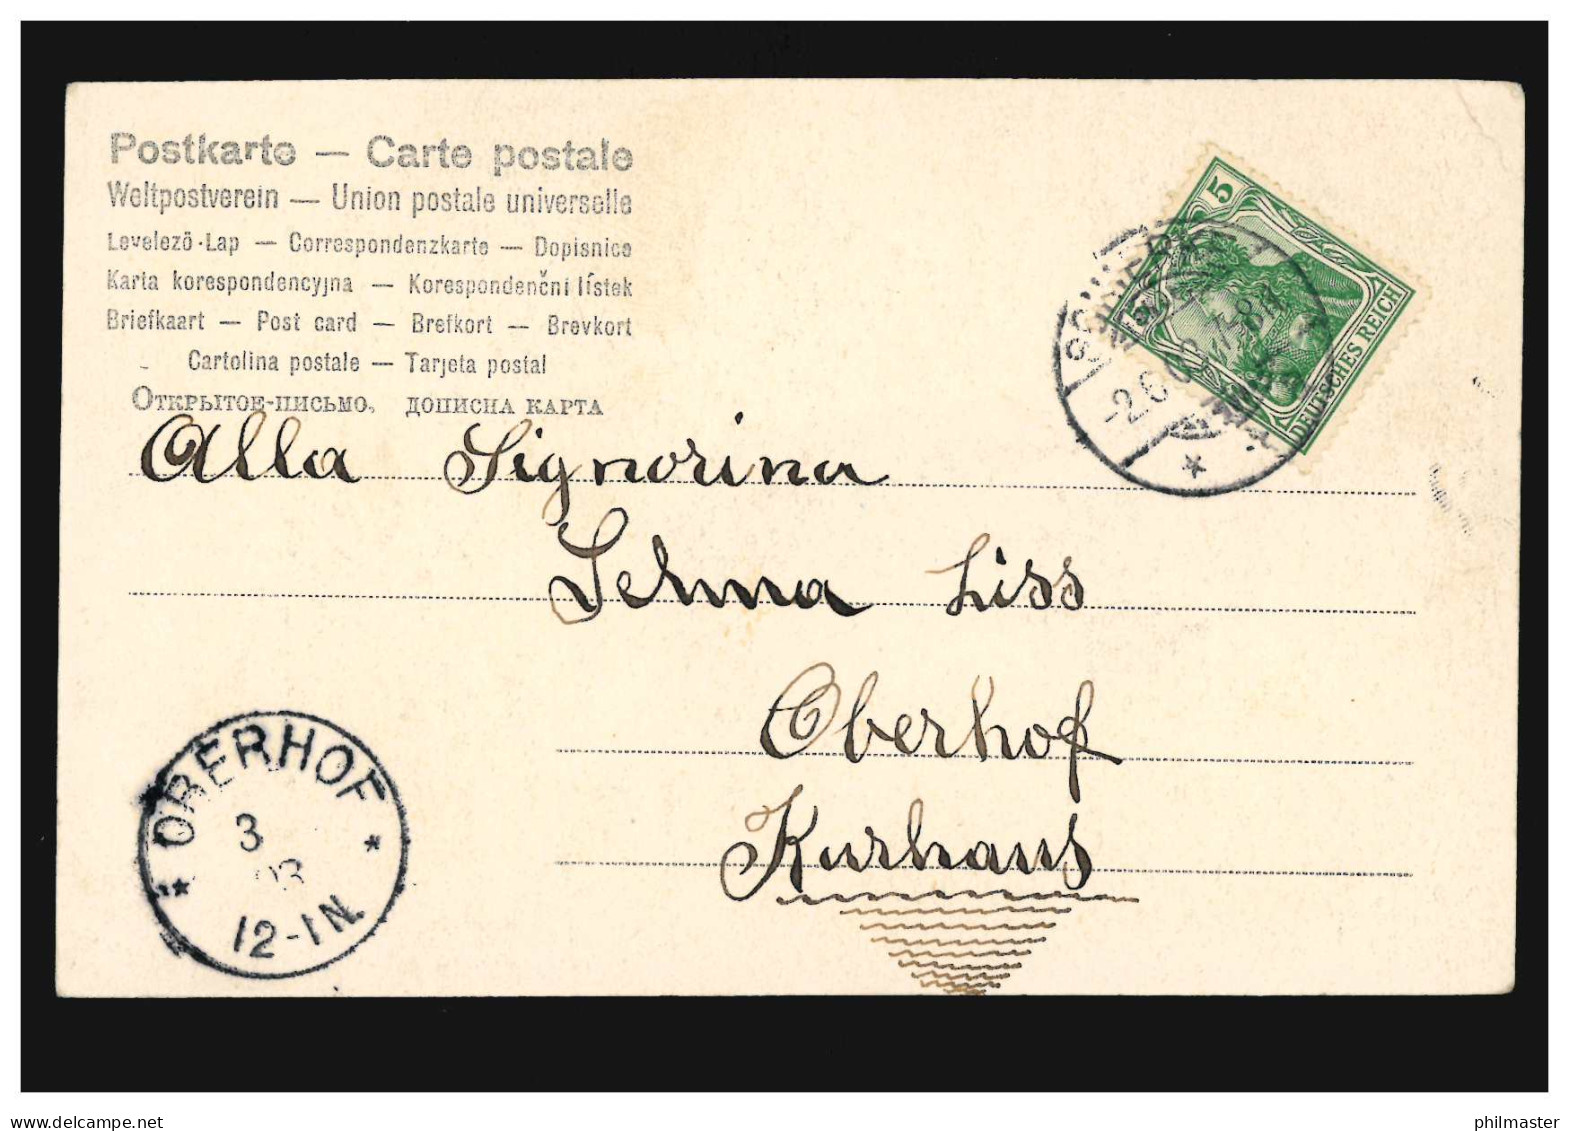 Postkarte — Carte postale
Weltpostverein — Union postale universelle
Levelező-Lap — Correspondenzkarte — Dopisnice
Karta korespondencyjna — Korespondenční lístek
Briefkaart — Post card — Brefkort — Brevkort
Cartolina postale — Tarjeta postal
Открытое-письмо, дописна карта
5
5
DEUTSCHES REICH
7-8N
-2.6.
Alla Signorina
Selma Liss
Oberhof
Kurhaus
* OBERHOF *
3
03
12-1N.
philmaster
www.delcampe.net